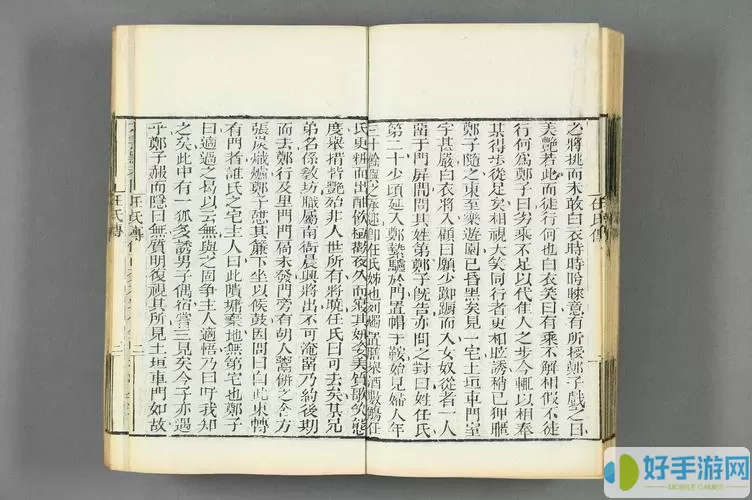 任氏傳
之將挑而未敢白衣時時盼睞意有所授鄭子戲之曰
美艷若此而徒行何也白衣笑曰有乘不解相假不徒
行何爲鄭子曰劣乘不足以代佳人之步今輒以相奉
某得步從足矣相視大笑同行者更相眩誘稍已狎暱
鄭子隨之東至樂遊園已昏黑矣見一宅土垣車門室
宇甚嚴白衣將入顧曰願少踟躕而入女奴從者一人
留于門屏間問其姓第鄭子旣告亦問之對曰姓任氏
第二十少頃延入鄭縶驢於門置帽于鞍始見婦人年
三十餘與之承迎卽任氏姊也列燭置膳舉酒數觴任
氏更粧而出酣飲極歡夜久而寢其妍姿美質歌笑態
度舉措皆艷殆非人世所有將曉任氏曰可去矣某兄
弟名係敎坊職屬南衙晨興將出不可淹留乃約後期
而去鄭行及里門門扃未發門旁有胡人鬻餅之舍方
張炭熾爐鄭子憩其簾下坐以候鼓因問曰自此東轉
有門者誰氏之宅主人曰此隤墉棄地無第宅也鄭子
曰適過之曷以云無與之固爭主人適悟乃曰吁我知
之矣此中有一狐多誘男子偶宿嘗三見矣今子亦遇
乎鄭子赧而隱曰無質明復視其所見土垣車門如故
任氏傳
好手游网
MOBILE GAMES